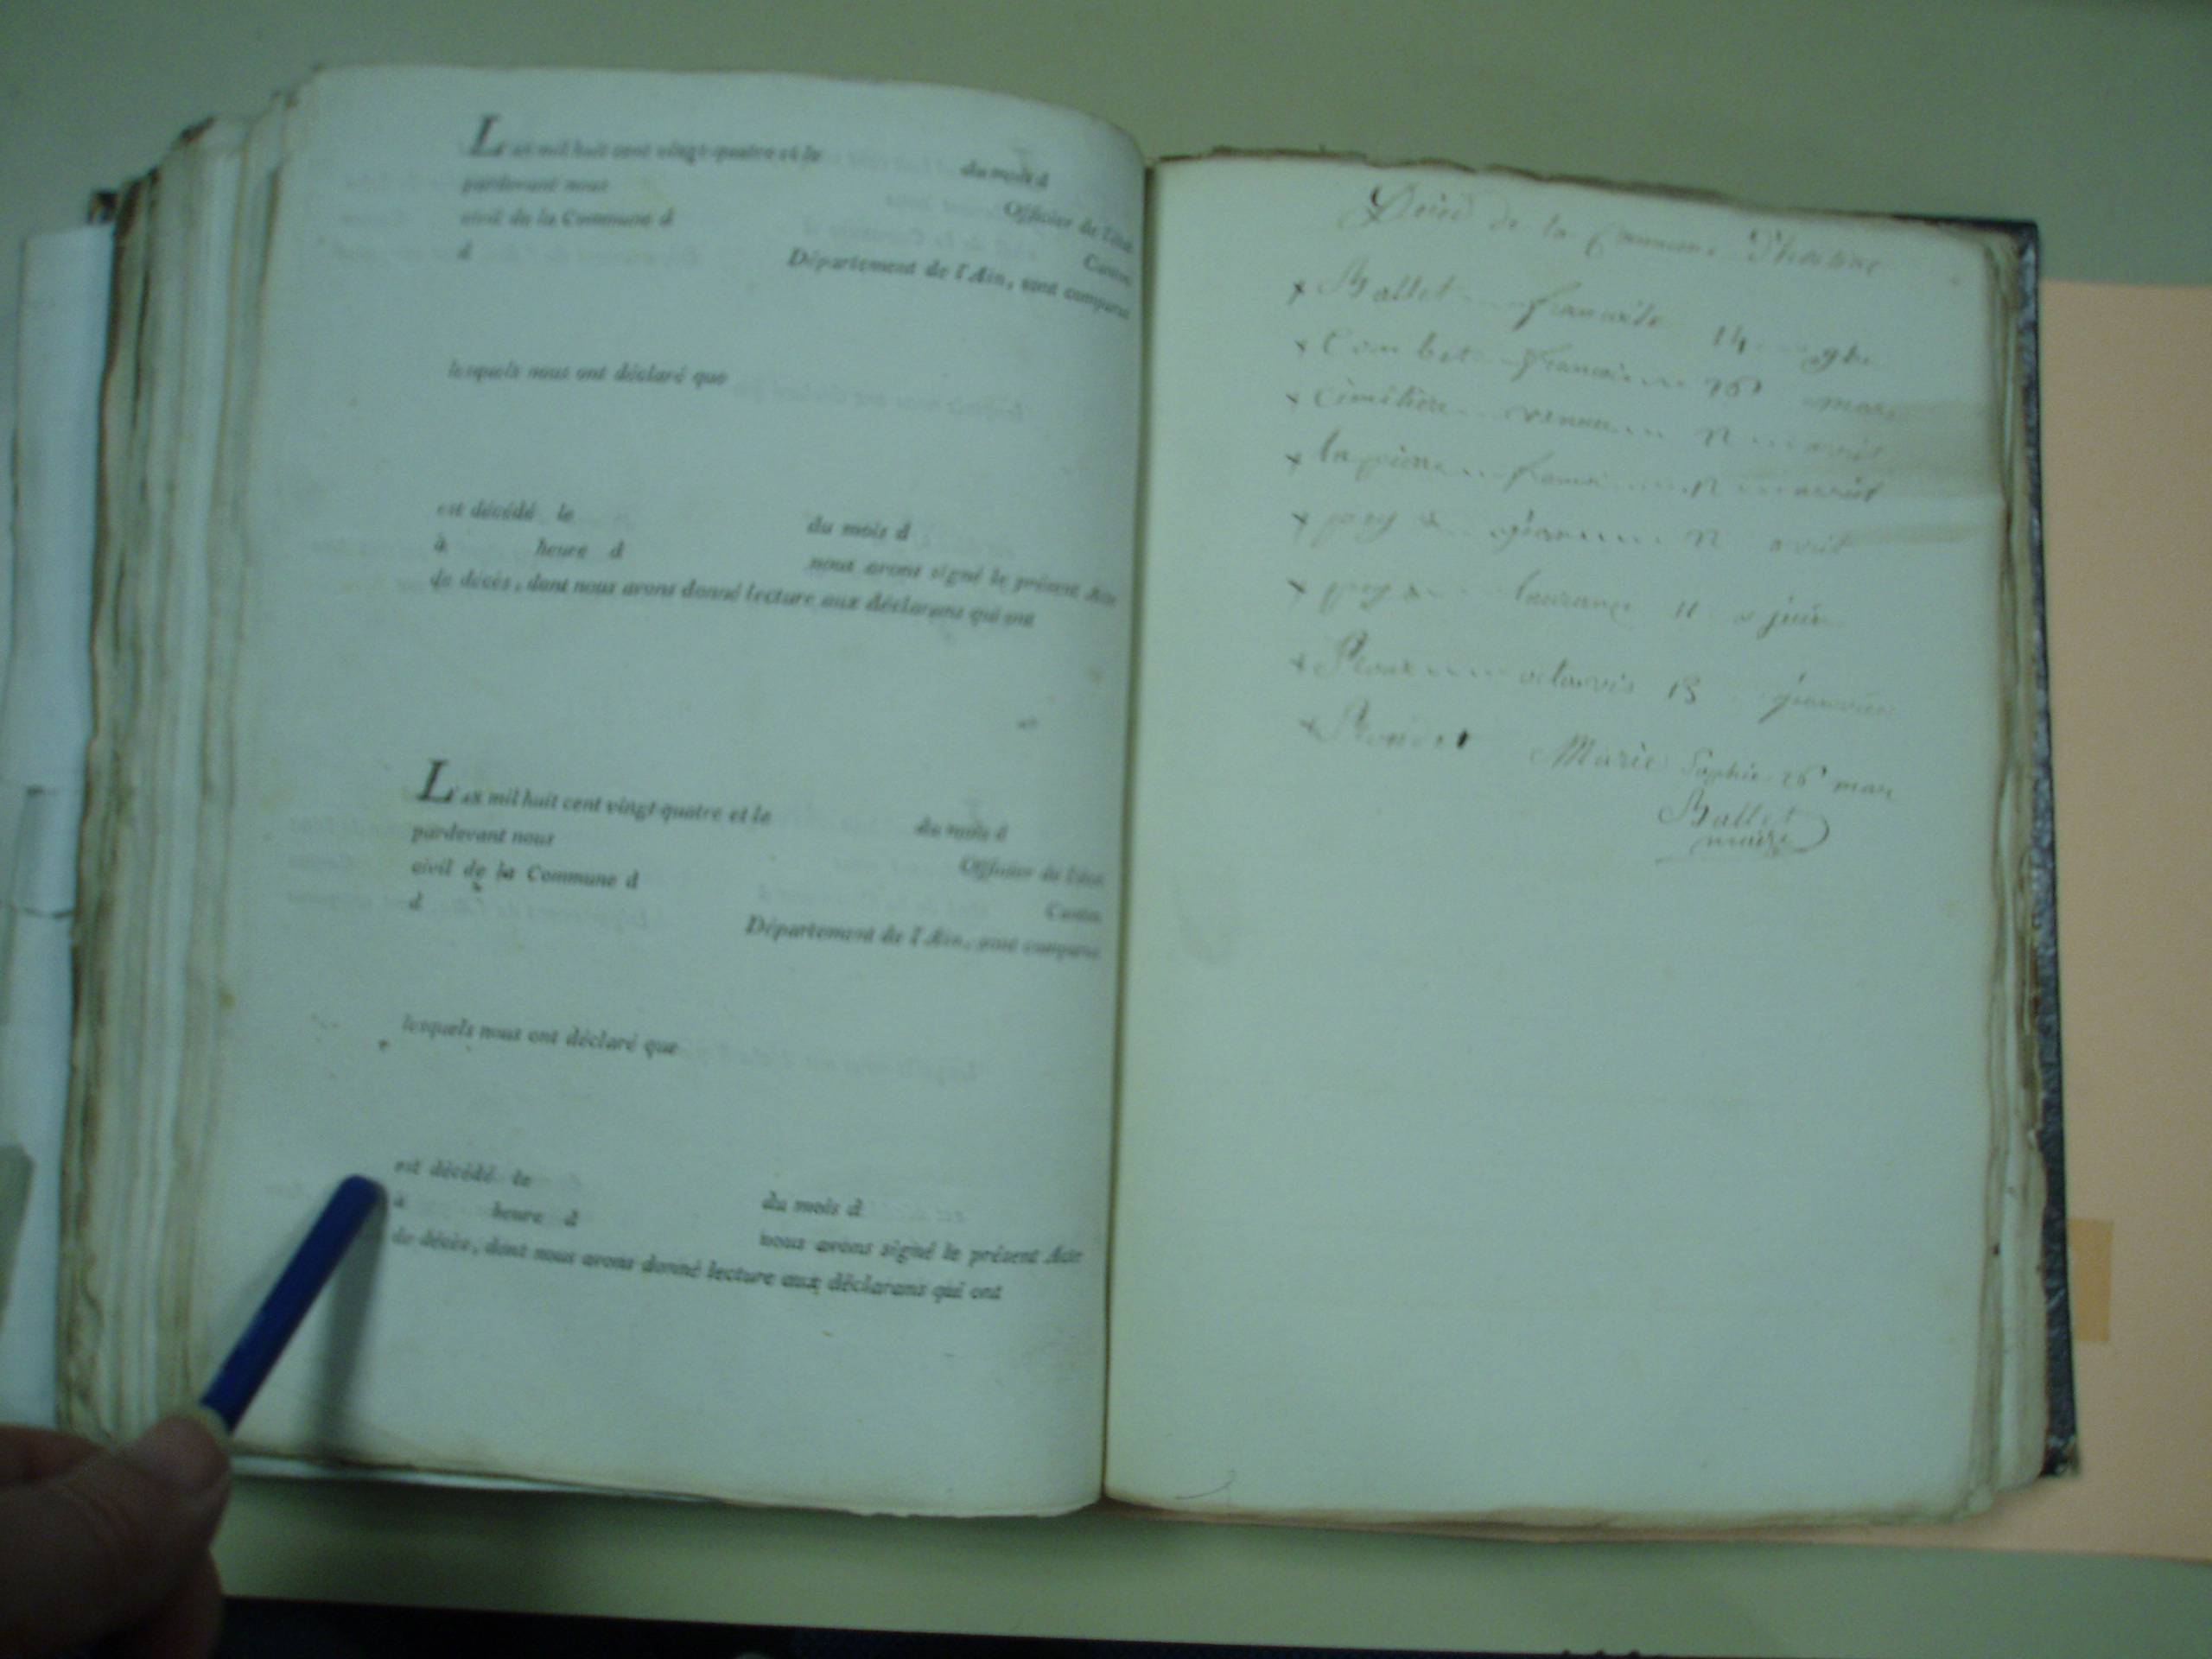 L'an mil huit cent vingt-quatre et le du mois d
pardevant nous Officier de l'état
civil de la Commune d Canton
d Département de l'Ain, sont comparus
lesquels nous ont déclaré que
est décédé le du mois d
à heure d nous avons signé le présent Acte
de décès, dont nous avons donné lecture aux déclarans qui ont
L'an mil huit cent vingt-quatre et le du mois d
pardevant nous Officier de l'état
civil de la Commune d Canton
d Département de l'Ain, sont comparus
lesquels nous ont déclaré que
est décédé le du mois d
à heure d nous avons signé le présent Acte
de décès, dont nous avons donné lecture aux déclarans qui ont
de la Commune
x Ballet 14 9bre
x Combet 26 mars
x cimetière 12 avril
x la pierre 12 avril
x 12 avril
x laurence 11 juin
x Roux octavie 13
x Marie Sophie 26 mars
Ballet
maire